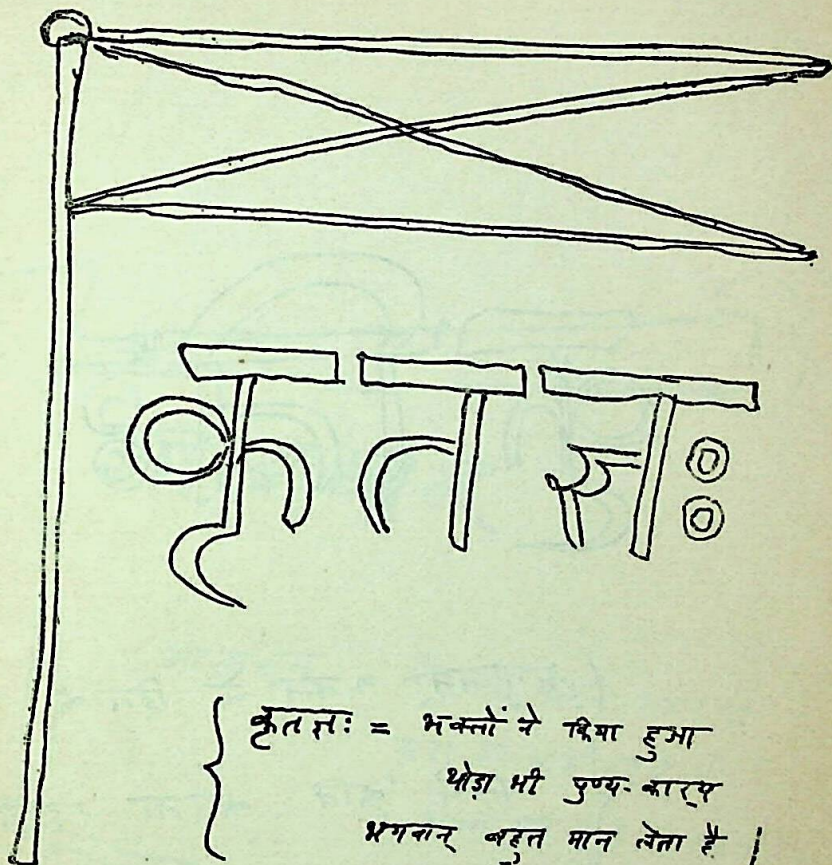 कृतज्ञः
कृतज्ञः = भक्तों ने किया हुआ
थोड़ा भी पुण्य-कार्य
भगवान् बहुत मान लेता है ।